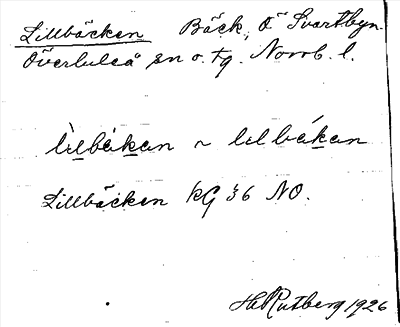 Lillbäcken Bäck, Ö Svartbyn.
Överluleå sn o. tg. Norrb. l.
lìlbä́kan ~ lılbä́kan
Lillbäcken kG 36 NO.
H Rutberg 1926